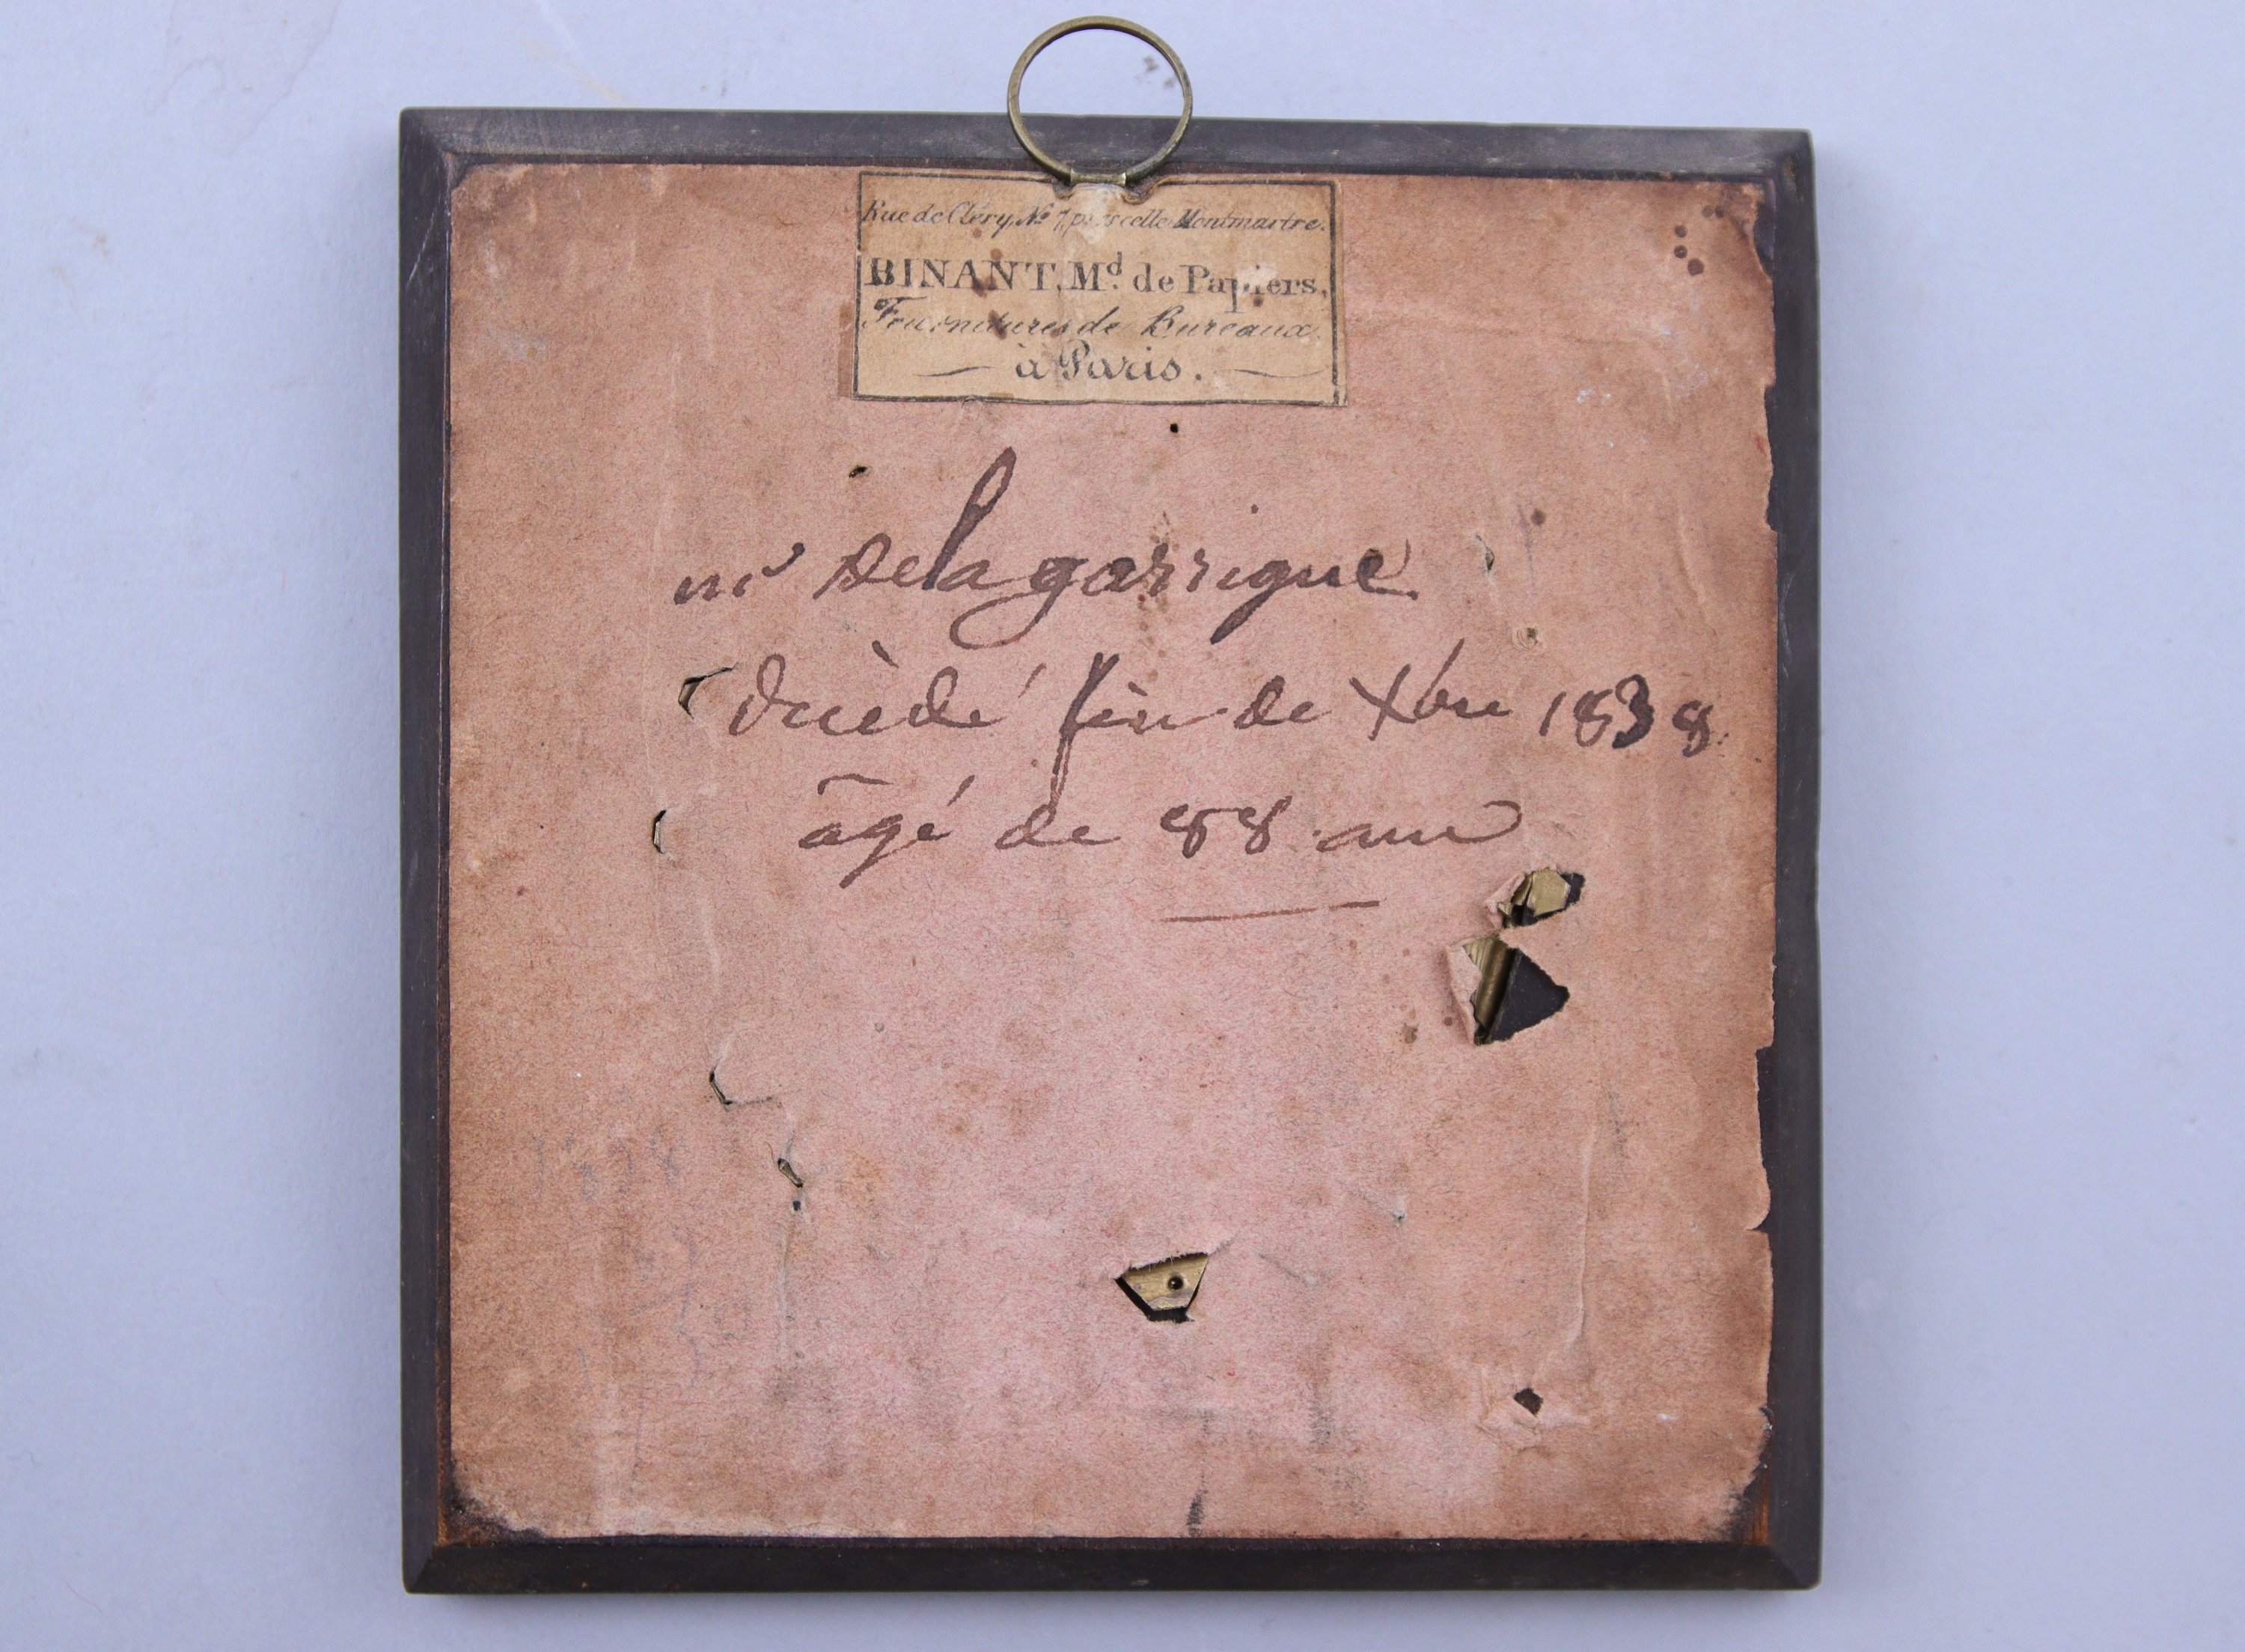 Rue de Cléry, No 7, près celle Montmartre.
BINANT, Md. de Papiers,
Fournitures de Bureaux
à Paris.
mr Delagarrigue
décèdé fin de Xbre 1838
âgé de 88 ans